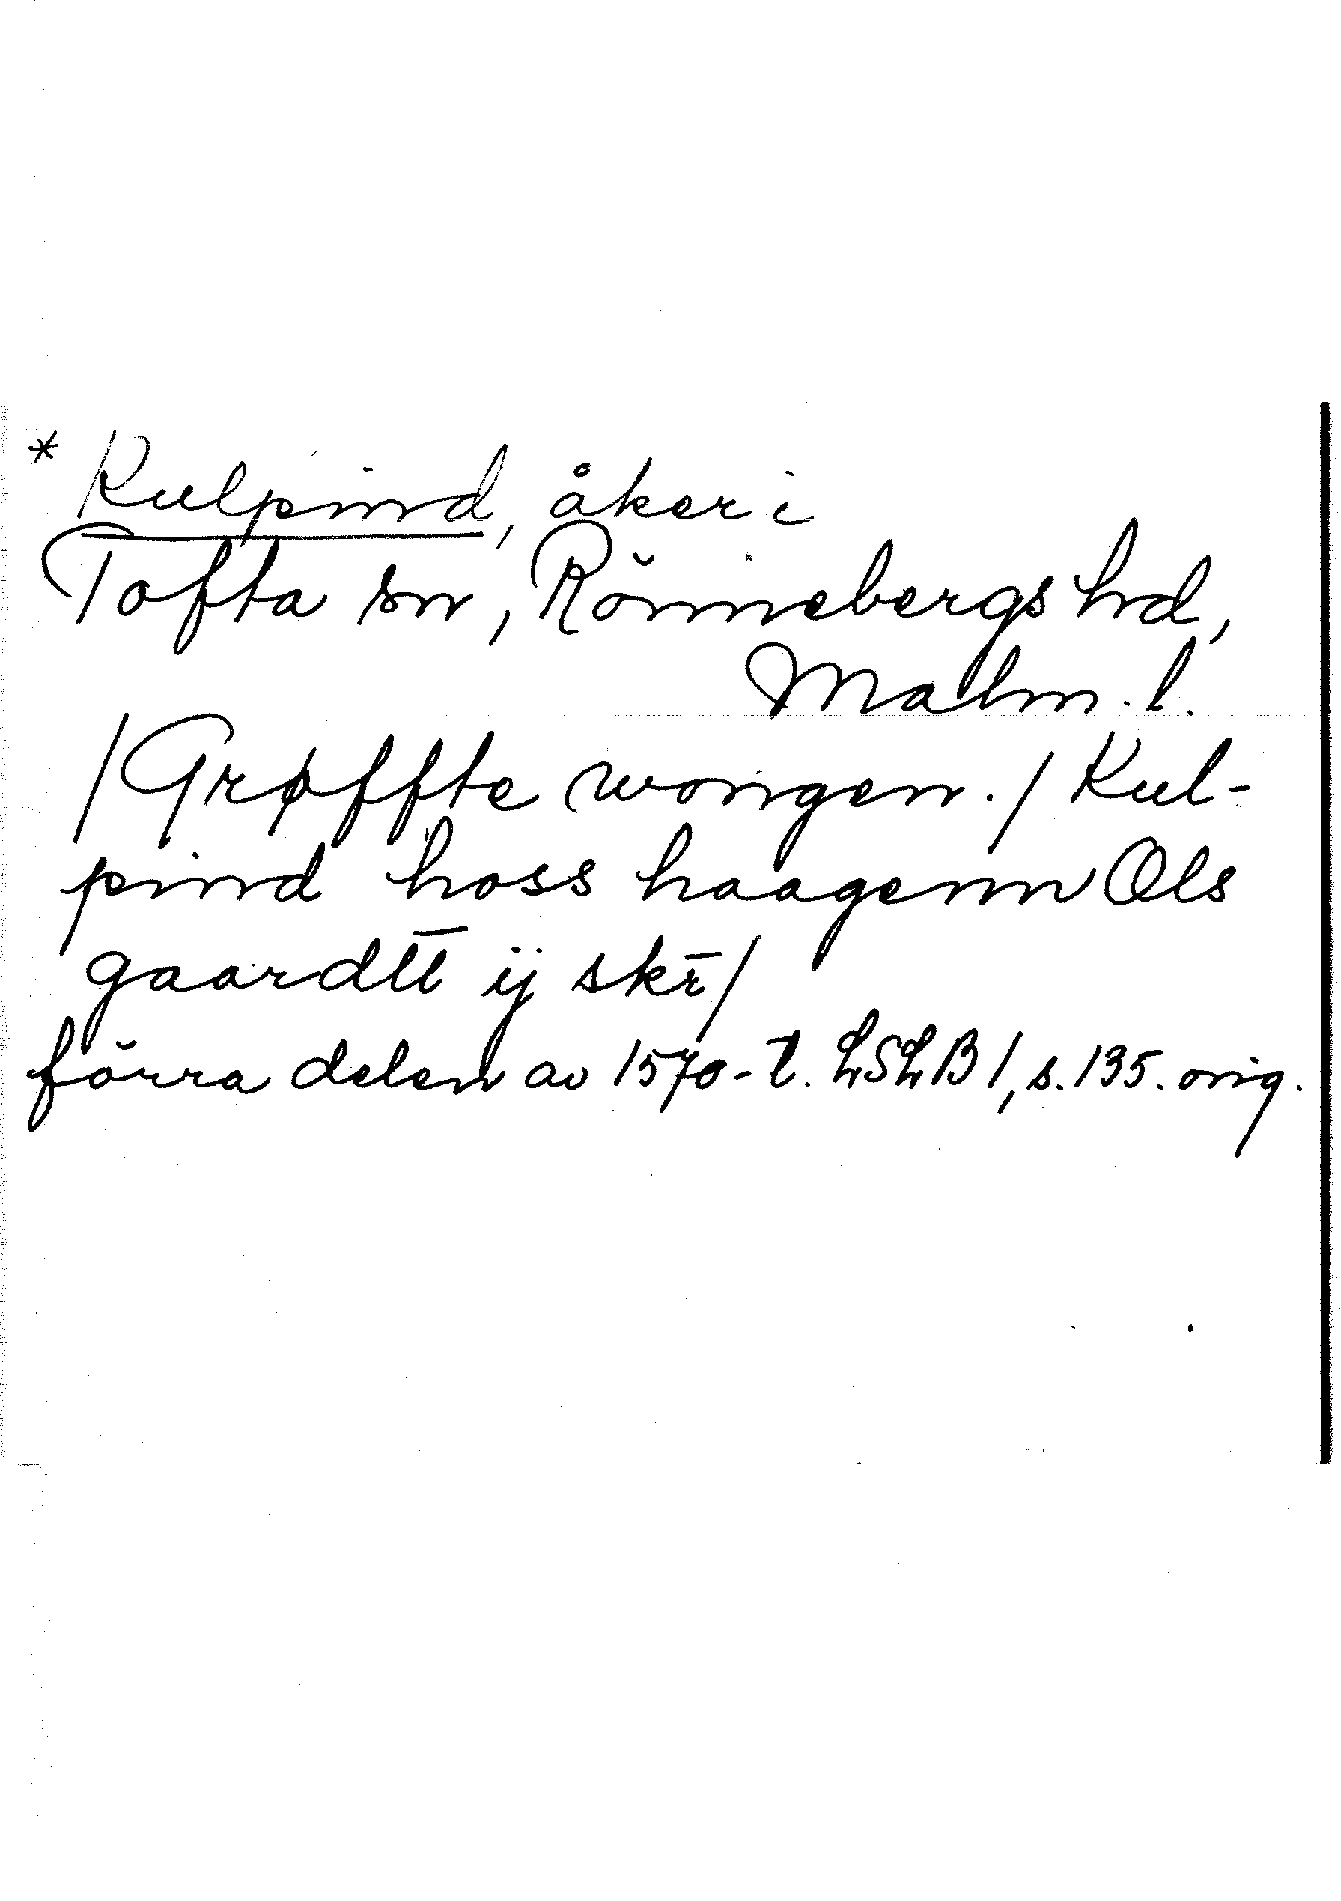 * Kulpind, åker i
Tofta sn, Rönnebergs hd,
Malm. l.
/Grøffte wongen./ Kul-
pind hoss haagenn Ols
gaardtt ij skr̄/
förra delen av 1570-t. LSLB 1, s. 135. orig.